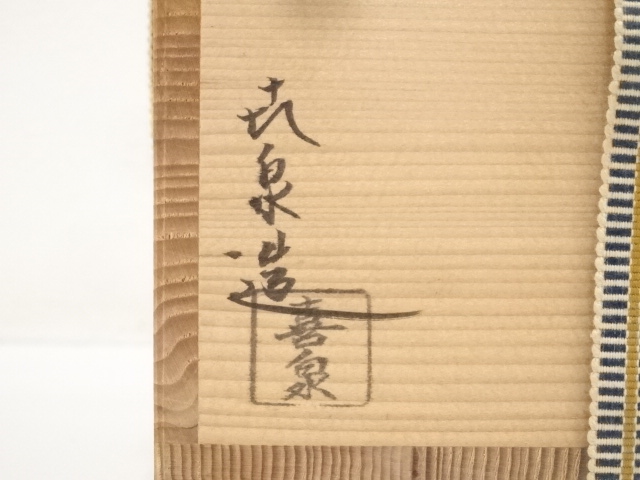 㐂泉造
喜泉